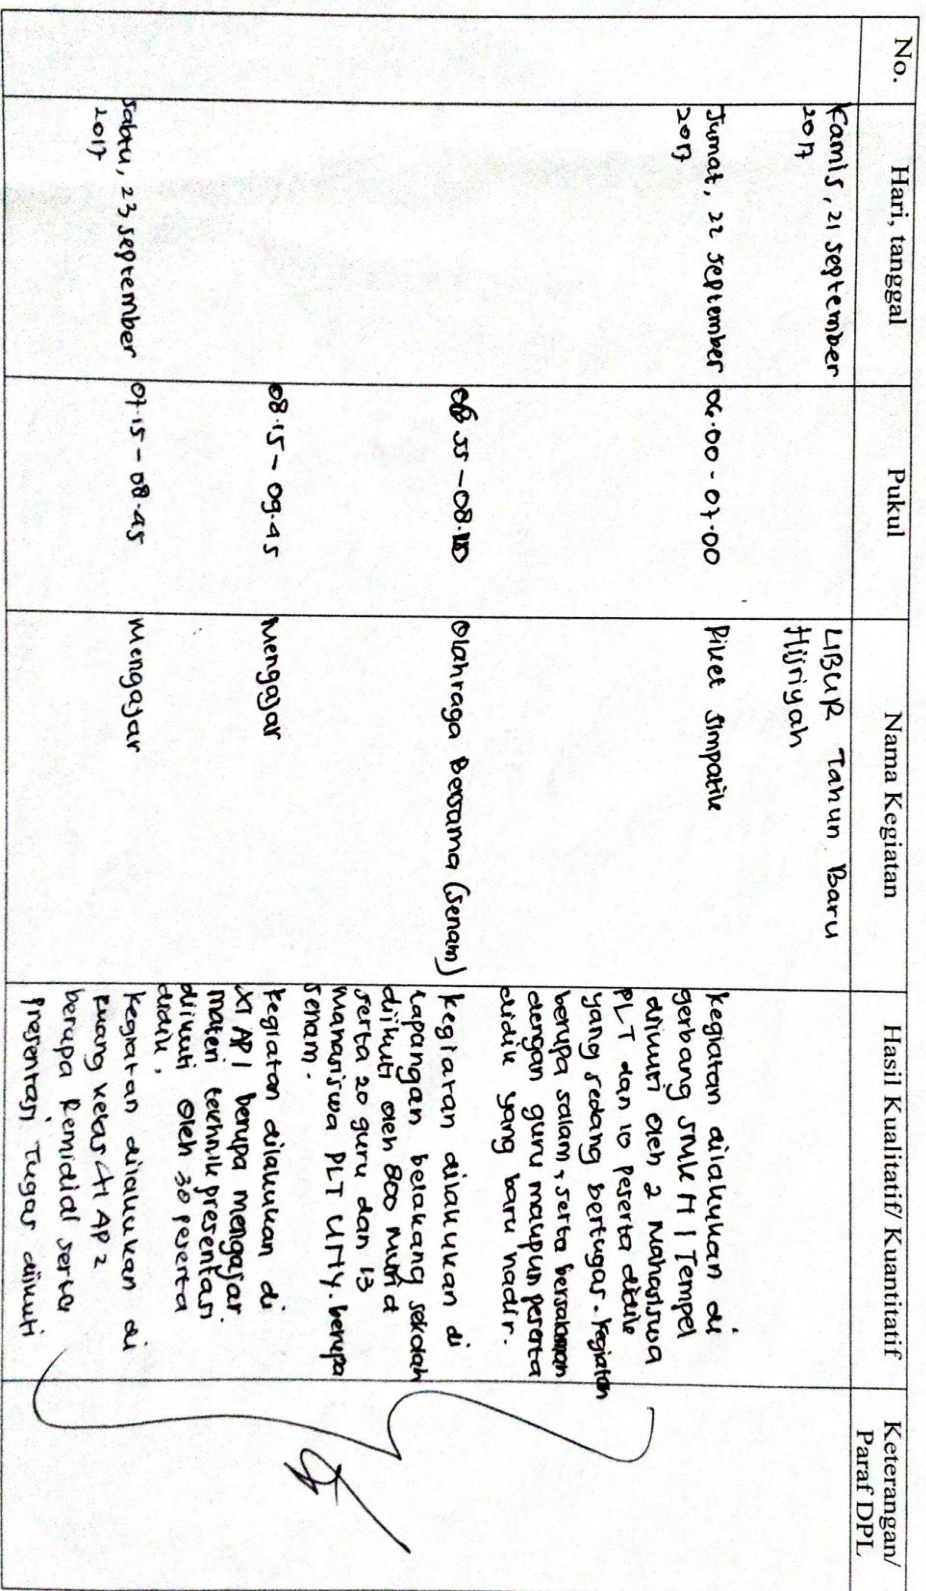 No.
Hari, tanggal
Pukul
Nama Kegiatan
Hasil Kualitatif/ Kuantitatif
Keterangan/
Paraf DPL
Kamis, 21 September
2017
LIBUR Tahun Baru
Hijriyah
Jumat, 22 September
2017
06.00 - 07.00
Piket Simpatik
Kegiatan dilakukan di
gerbang SMK N 1 Tempel
diikuti oleh 2 Mahasiswa
PLT dan 10 peserta didik
yang sedang bertugas. Kegiatan
berupa salam, serta bersalaman
dengan guru maupun peserta
didik yang baru hadir.
06.55 - 08.10
Olahraga Bersama (Senam)
Kegiatan dilakukan di
Lapangan belakang sekolah
diikuti oleh 800 murid
serta 20 guru dan 13
mahasiswa PLT UNY. berupa
senam.
08.15 - 09.45
Mengajar
Kegiatan dilakukan di
XI AP 1 berupa mengajar
materi tekhnik presentasi
diikuti oleh 30 peserta
didik.
Sabtu, 23 September
2017
07.15 - 08.45
Mengajar
Kegiatan dilakukan di
ruang kelas XI AP 2
berupa Remidial serta
presentasi Tugas diikuti